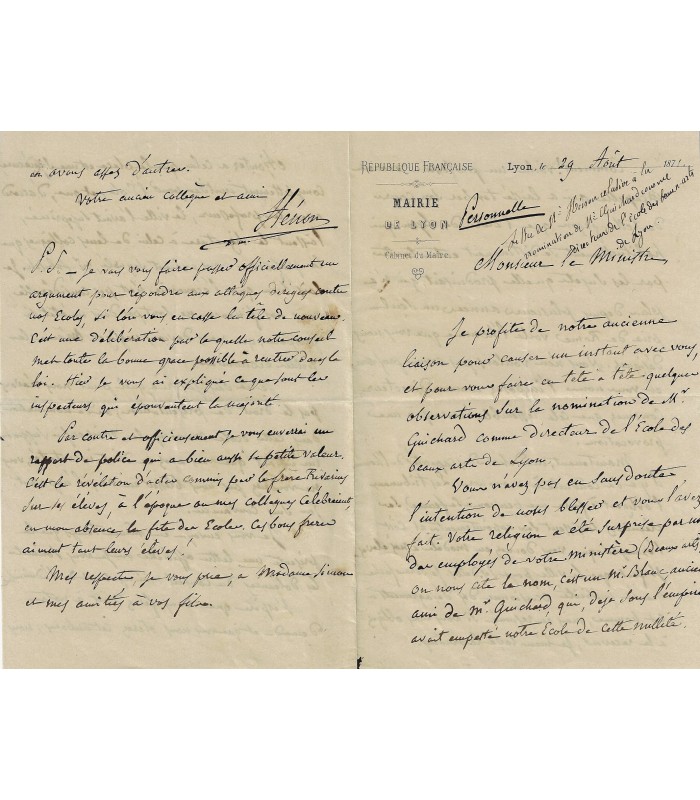 RÉPUBLIQUE FRANÇAISE
Lyon, le 29 Août 1871
MAIRIE
DE LYON
Cabinet du Maire.
Personnelle
lettre de Mr. Hénon relative à la
nomination de Mr. Guichard comme
directeur de l'Ecole des beaux arts
de Lyon.
Monsieur le Ministre
Je profite de notre ancienne
liaison pour causer un instant avec vous,
et pour vous faire en tête à tête quelques
observations sur la nomination de Mr
Guichard comme directeur de l'Ecole des
beaux arts de Lyon.
Vous n'avez pas eu sans doute
l'intention de nous blesser et vous l'avez
fait. Votre religion a été surprise par un
des employés de votre ministère (Beaux arts)
on nous cite le nom, c'est un Mr. Blanc, ancien
ami de Mr Guichard, qui, déjà sous l'empire
avait empesté notre Ecole de cette nullité.
en avons assez d'autres.
Votre ancien collègue et ami
Hénon
P.S. - Je vais vous faire passer officiellement un
argument pour répondre aux attaques dirigées contre
nos Ecoles, si l'on vous en casse la tête de nouveau.
C'est une délibération par laquelle notre conseil
met toute la bonne grace possible à rentrer dans la
loi. Hier je vous ai expliqué ce que sont les
inspecteurs qui épouvantent la majorité
Par contre et officieusement je vous enverrai un
rapport de police qui a bien aussi sa petite valeur.
C'est la révélation d'actes commis par le frere
sur ses élèves, à l'époque ou mes collègues célébraient
en mon absence la fête des Ecoles. Ces bons freres
aiment tant leurs élèves!
Mes respects, je vous prie, a Madame Simon
et mes amitiés à vos fils.